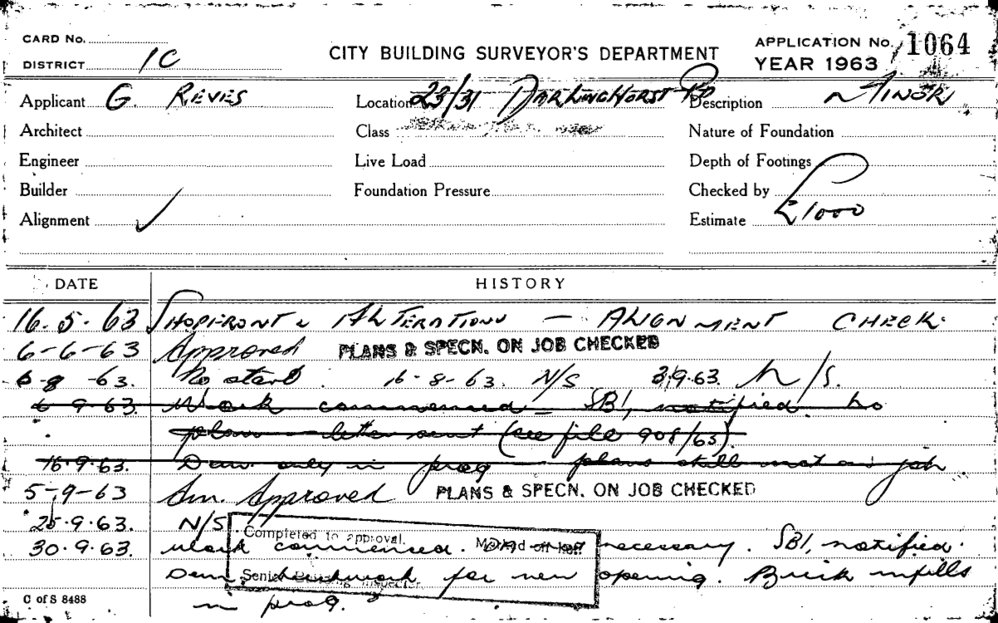 CARD No.
DISTRICT 1C
CITY BUILDING SURVEYOR'S DEPARTMENT
APPLICATION No. 1064
YEAR 1963
Applicant G REVES Location 23/31 DARLINGHURST RD Description MINOR
Architect Class Nature of Foundation
Engineer Live Load Depth of Footings
Builder Foundation Pressure Checked by
Alignment ✓ Estimate £1000
DATE HISTORY
16.5.63 SHOPFRONT & ALTERATIONS — ALIGNMENT CHECK.
6-6-63 Approved PLANS & SPECN. ON JOB CHECKED
6-8-63. No start. 16-8-63. N/S 3.9.63. N/S.
6 9.63. Work commenced — SBI, notified. No
plans — letter sent (see file 908/63).
16.9.63. Dem. only in prog — plans still not on job
5-9-63 Am. Approved PLANS & SPECN. ON JOB CHECKED
25.9.63. N/S
Completed to approval.
30.9.63. Work commenced. necessary. SBI, notified.
Dem. for new opening. Brick infills
in prog.
C of S 8488